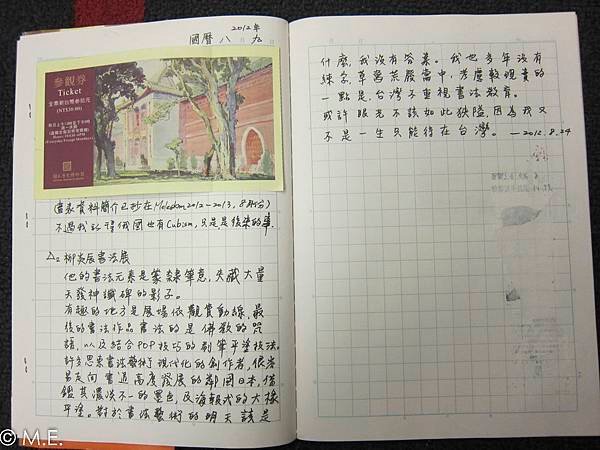 2012年
國曆 八 九
參觀券
Ticket
全票新台幣叁拾元
(NT$30.00)
國立歷史博物館
(畫家資料簡介已抄在Moleskine2012~2013, 8月份)
不過我記得俄國也有Cubism,只是是後來的事.
△2 柳炎辰書法展
他的書法元素是篆隸筆意,失藏大量
天發神讖碑的影子。
有趣的地方是展場依觀賞動線,最
後的書法作品書法的是佛教的咒
語,以及結合POP技巧的刷筆平塗技法,
許多思索書法藝術了現代化的創作者,很容
易走向書道高度發展的鄰國日本,借
鑑其濃淡不一的墨色,及海報式的大樣
平塗。對於書法藝術的明天該是
什麼,我沒有答案。我也多年沒有
練字草舊荒廢當中,考慮較現實的
一點是,台灣不重視書法教育。
或許眼光不該如此狹隘,因為我又
不是一生只能待在台灣。—2012.8.24
© M.E.